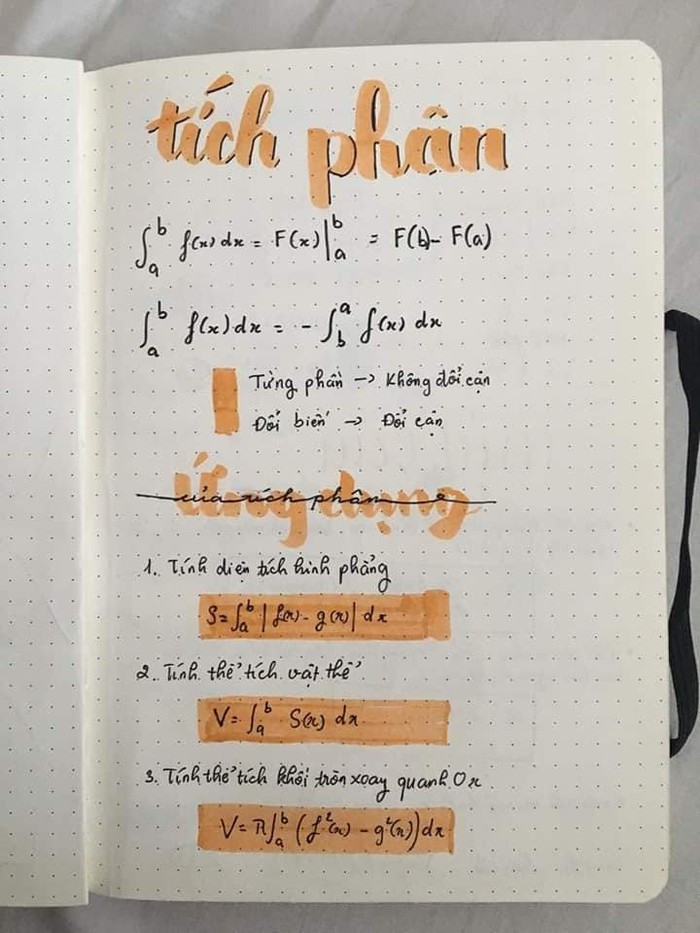 tích phân
∫ₐᵇ f(x) dx = F(x)|ₐᵇ = F(b) - F(a)
∫ₐᵇ f(x) dx = - ∫_b^a f(x) dx
Từng phần -> Không đổi cận
Đổi biến -> Đổi cận
Ứng dụng
của tích phân
1. Tính diện tích hình phẳng
S = ∫ₐᵇ | f(x) - g(x) | dx
2. Tính thể tích vật thể
V = ∫ₐᵇ S(x) dx
3. Tính thể tích khối tròn xoay quanh Ox
V = π∫ₐᵇ (f²(x) - g²(x)) dx